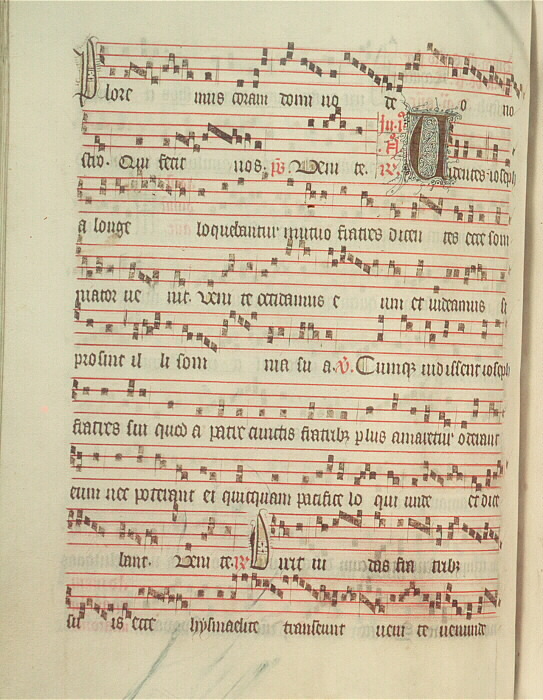 Plore mus coram domi no de o no
stro. Qui fecit nos. ps. Veni te. R. Videntes ioseph
a longe loquebantur mutuo fratres dicen tes ecce som
niator ue nit. Veni te occidamus e um et uideamus si
prosint il li som nia su a. V. Cumq; uidissent ioseph
fratres sui quod a patre cunctis fratrib; plus amaretur oderant
eum nec poterant ei quicquam pacifice lo qui unde et dice
bant. Veni te. R. Dixit iu das fra trib;
su is ecce hysmaelite transeunt ueni te uenunde